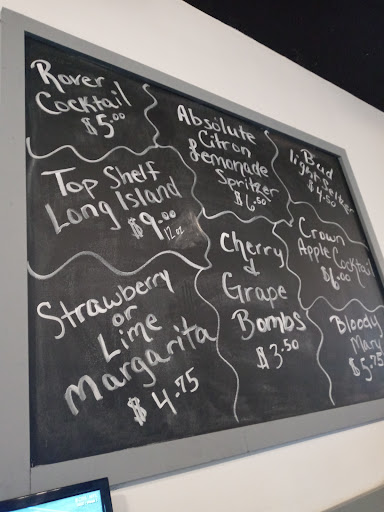 Rover
Cocktail
$5.00
Top Shelf
Long Island
$9.00
12 oz
Strawberry
or
Lime
Margarita
$4.75
Absolute
Citron
Lemonade
Spritzer
$6.50
Cherry
&
Grape
Bombs
$3.50
Bud
light Seltzer
$4.50
Crown
Apple Cocktail
$6.00
Bloody
Mary
$5.75